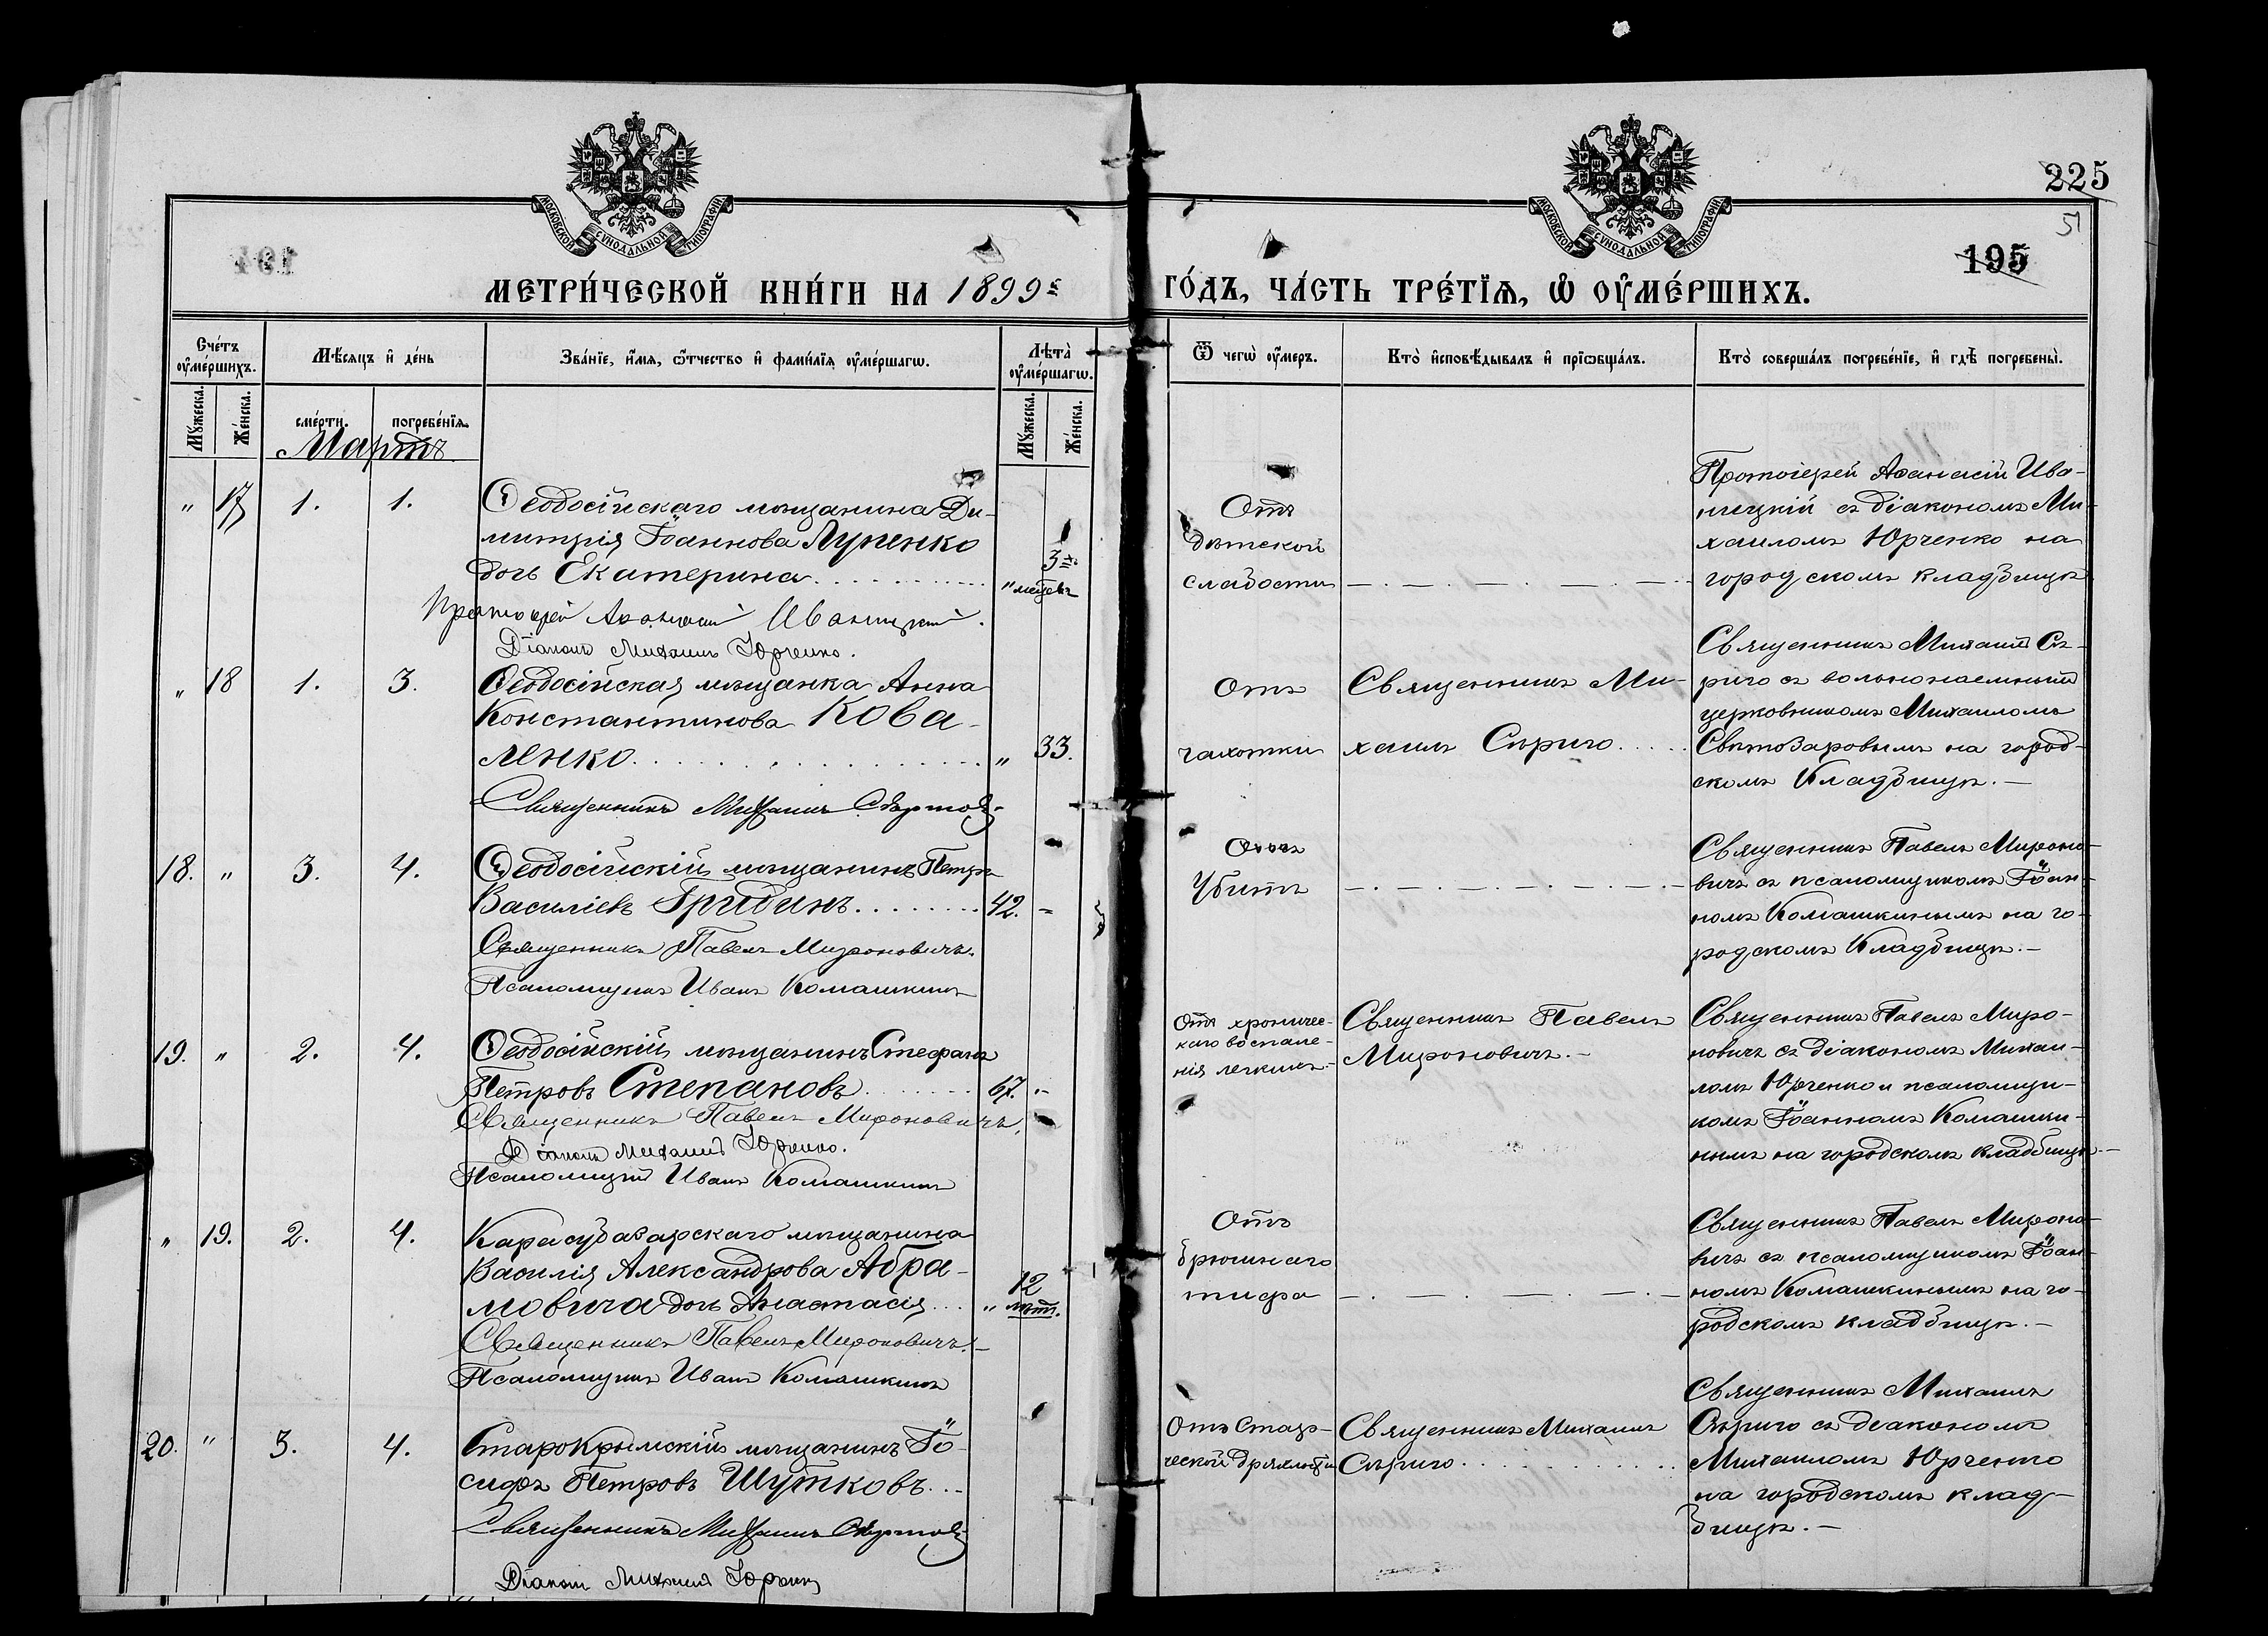 225
51
195
МОСКОВСКОЙ СѴНОДАЛЬНОЙ ТИПОГРАФІИ
МОСКОВСКОЙ СѴНОДАЛЬНОЙ ТИПОГРАФІИ
МЕТРИ́ЧЕСКОЙ КНИ́ГИ НА 1899й
ГО́ДЪ, ЧА́СТЬ ТРЕ́ТІѦ, Ѡ ОУ҆МЕ́РШИХЪ.
Сче́тъ оу҆ме́ршихъ.
Мѣ́сяцъ и҆ де́нь
Зва́нїе, и҆́мя, ѻ҆́тчество и҆ фами́лїѧ оу҆ме́ршагѡ.
Лѣта̀ оу҆ме́ршагѡ.
Ѿ чегѡ̀ оу҆́меръ.
Кто̀ и҆сповѣ́дывалъ и҆ прїѡбща́лъ.
Кто̀ соверша́лъ погребе́нїе, и҆ гдѣ̀ погребены̀.
Мꙋжеска.
Же́нска.
сме́рти.
погребе́нїѧ.
Мꙋжеска.
Же́нска.
Мартъ
" 17 1. 1.
Ѳеодосійскаго мѣщанина Ди-
митрія Іоаннова Луценко
дочь Екатерина
3
" мѣсец
Протоіерей Аѳанасій Иваницкій.
Діаконъ Михаилъ Юрченко.
Отъ
дѣтской
слабости
Протоіерей Аѳанасій Ива-
ницкій съ діакономъ Ми-
хаиломъ Юрченко на
городскомъ кладбищѣ
" 18 1. 3.
Ѳеодосійская мѣщанка Анна
Константинова Кова-
ленко " 33.
Священникъ Михаилъ
Отъ
чахотки
Священникъ Ми-
хаилъ Сѣриго
Священникъ Михаилъ Сѣ-
риго съ вольнонаемнымъ
церковникомъ Михаиломъ
Свѣтозаровымъ на город-
скомъ Кладбищѣ.—
18. " 3. 4.
Ѳеодосійскій мѣщанинъ Петръ
Василіевъ Гридинъ 42. -
Священникъ Павелъ Мироновичъ.
Псаломщикъ Иванъ Комашкинъ
Убитъ
Священникъ Павелъ Мироно-
вичъ съ псаломщикомъ Іоан-
номъ Комашкинымъ на го-
родскомъ Кладбищѣ.—
19. " 2. 4.
Ѳеодосійскій мѣщанинъ Стефанъ
Петровъ Степановъ 67. "
Священникъ Павелъ Мироновичъ.
Діаконъ Михаилъ Юрченко.
Псаломщикъ Иванъ Комашкинъ
Отъ хроничес-
каго воспале-
нія легкихъ.-
Священникъ Павелъ
Мироновичъ.—
Священникъ Павелъ Миро-
новичъ съ діакономъ Михаи-
ломъ Юрченко и псаломщи-
комъ Іоанномъ Комашки-
нымъ на городскомъ кладбищѣ.—
" 19. 2. 4.
Карасубазарскаго мѣщанина
Василія Александрова Абра-
мовича дочь Анастасія
12
" лѣтъ.
Священникъ Павелъ Мироновичъ.—
Псаломщикъ Иванъ Комашкинъ
Отъ
брюшнаго
тифа
Священникъ Павелъ Мироно-
вичъ съ псаломщикомъ Іоан-
номъ Комашкинымъ на го-
родскомъ кладбищѣ.—
20. " 3. 4.
Старокрымскій мѣщанинъ Іо-
сифъ Петровъ Шутковъ
Священникъ Михаилъ
Діаконъ Михаилъ Юрченко
Отъ стар-
ческой дряхлости
Священникъ Михаилъ
Сѣриго
Священникъ Михаилъ
Сѣриго съ діакономъ
Михаиломъ Юрченко
на городскомъ клад-
бищѣ.—